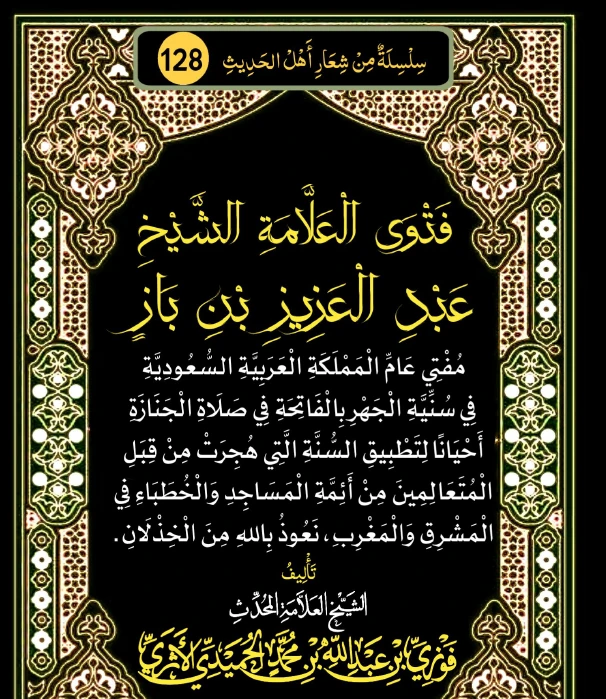 سِلْسِلَةٌ مِنْ شِعَارِ أَهْلِ الحَدِيثِ 128
فَتْوَى الْعَلَّامَةِ الشَّيْخِ
عَبْدِ الْعَزِيزِ بْنِ بَازٍ
مُفْتِي عَامِّ الْمَمْلَكَةِ الْعَرَبِيَّةِ السُّعُودِيَّةِ
فِي سُنِّيَّةِ الْجَهْرِ بِالْفَاتِحَةِ فِي صَلَاةِ الْجَنَازَةِ
أَحْيَانًا لِتَطْبِيقِ السُّنَّةِ الَّتِي هُجِرَتْ مِنْ قِبَلِ
الْمُتَعَالِمِينَ مِنْ أَئِمَّةِ الْمَسَاجِدِ وَالْخُطَبَاءِ فِي
الْمَشْرِقِ وَالْمَغْرِبِ، نَعُوذُ بِاللهِ مِنَ الْخِذْلَانِ.
تَأْلِيفُ
الشَّيْخِ العَلَّامَةِ المُحَدِّثِ
فَوْزِيِّ بْنِ عَبْدِ اللَّهِ بْنِ مُحَمَّدٍ الحُمَيْدِيِّ الأَثَرِيِّ